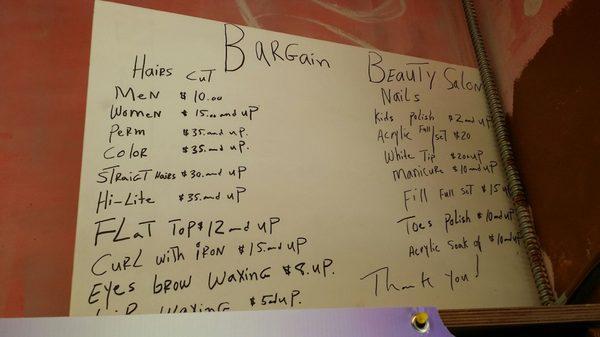 Bargain Beauty Salon
Hairs Cut
Men $10.00
Women $15.00 and up
Perm $35.and up.
Color $35.and up.
Straigt Hairs $30.and up
Hi-Lite $35.and up
Flat Top $12 and up
Curl with iron $15.and up
Eyes brow Waxing $8.up.
Lip Waxing $5 and up.
Nails
Kids polish $2.and up
Acrylic Full set $20
White Tip $20 and up
Manicure $10 and up
Fill Full set $15 up
Toes polish $10 and up
Acrylic Soak of $10 and up
Thank you!